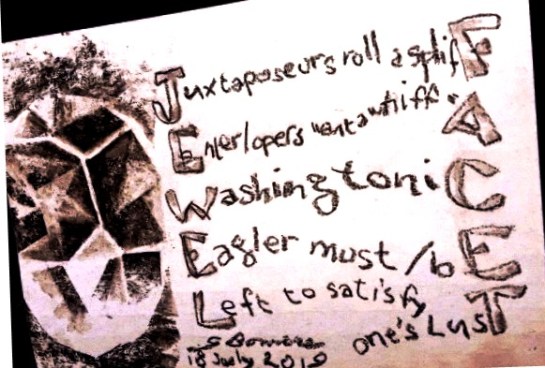 Juxtaposeurs roll a splifF
Enterlopers "enta" whiff. A
WashingtoniC
Eagler must / bE
Left to satisfy
one's LusT
S Bowers
18 July 2019